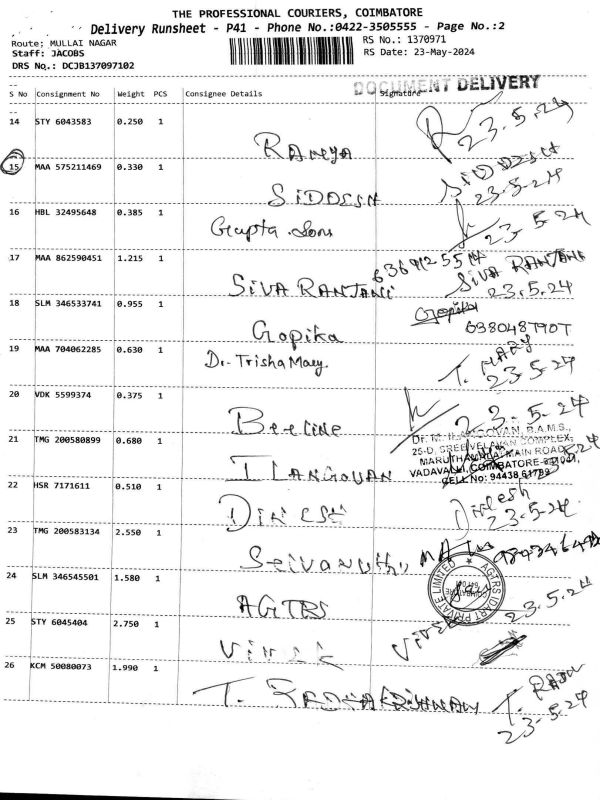 THE PROFESSIONAL COURIERS, COIMBATORE
Delivery Runsheet - P41 - Phone No.:0422-3505555 - Page No.:2
Route; MULLAI NAGAR
RS No.: 1370971
Staff: JACOBS
RS Date: 23-May-2024
DRS No.: DCJB137097102
DOCUMENT DELIVERY
S No Consignment No Weight PCS Consignee Details Signature
14 STY 6043583 0.250 1
RAMYA 23.5.24
15 MAA 575211469 0.330 1
SIDDESH SIDDESH
23.5.24
16 HBL 32495648 0.385 1
Gupta Sons 23 5 24
17 MAA 862590451 1.215 1
SIVA RANJANI SIVA RANJANI
23.5.24
18 SLM 346533741 0.955 1
Gopika Gopika
19 MAA 704062285 0.630 1
Dr. Trisha Mary T. MARY
23-5-24
20 VDK 5599374 0.375 1
Beeline 23.5.24
21 TMG 200580899 0.680 1
ILANGOVAN
25-D, SREE VELAVAN COMPLEX,
MARUTHAMALAI MAIN ROAD,
VADAVALLI, COIMBATORE-641041,
CELL No: 94438 61799
22 HSR 7171611 0.510 1
DINESH Dinesh
23-5-24
23 TMG 200583134 2.550 1
24 SLM 346545501 1.580 1
AGTRS 23.5.24
25 STY 6045404 2.750 1
VIVEK VIVEK
26 KCM 50080073 1.990 1
T. RADHAKRISHNAN T. RAJU
23-5-24